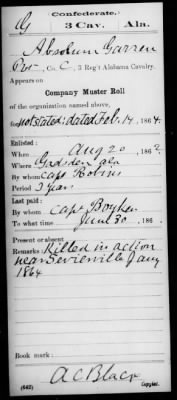 Confederate.
G 3 Cav. Ala.
Absolum Garren
Pvt, Co. C, 3 Reg't Alabama Cavalry.
Appears on
Company Muster Roll
of the organization named above,
for not stated: dated Feb. 14, 1864.
Enlisted:
When Aug 20, 1862
Where Gadsden ala
By whom Capt Robins
Period 3 years
Last paid:
By whom Capt
To what time June 30, 186
Present or absent
Remarks: Killed in action
near Sevierville Jany
1864
Book mark:
A C Black
(642) Copyist.